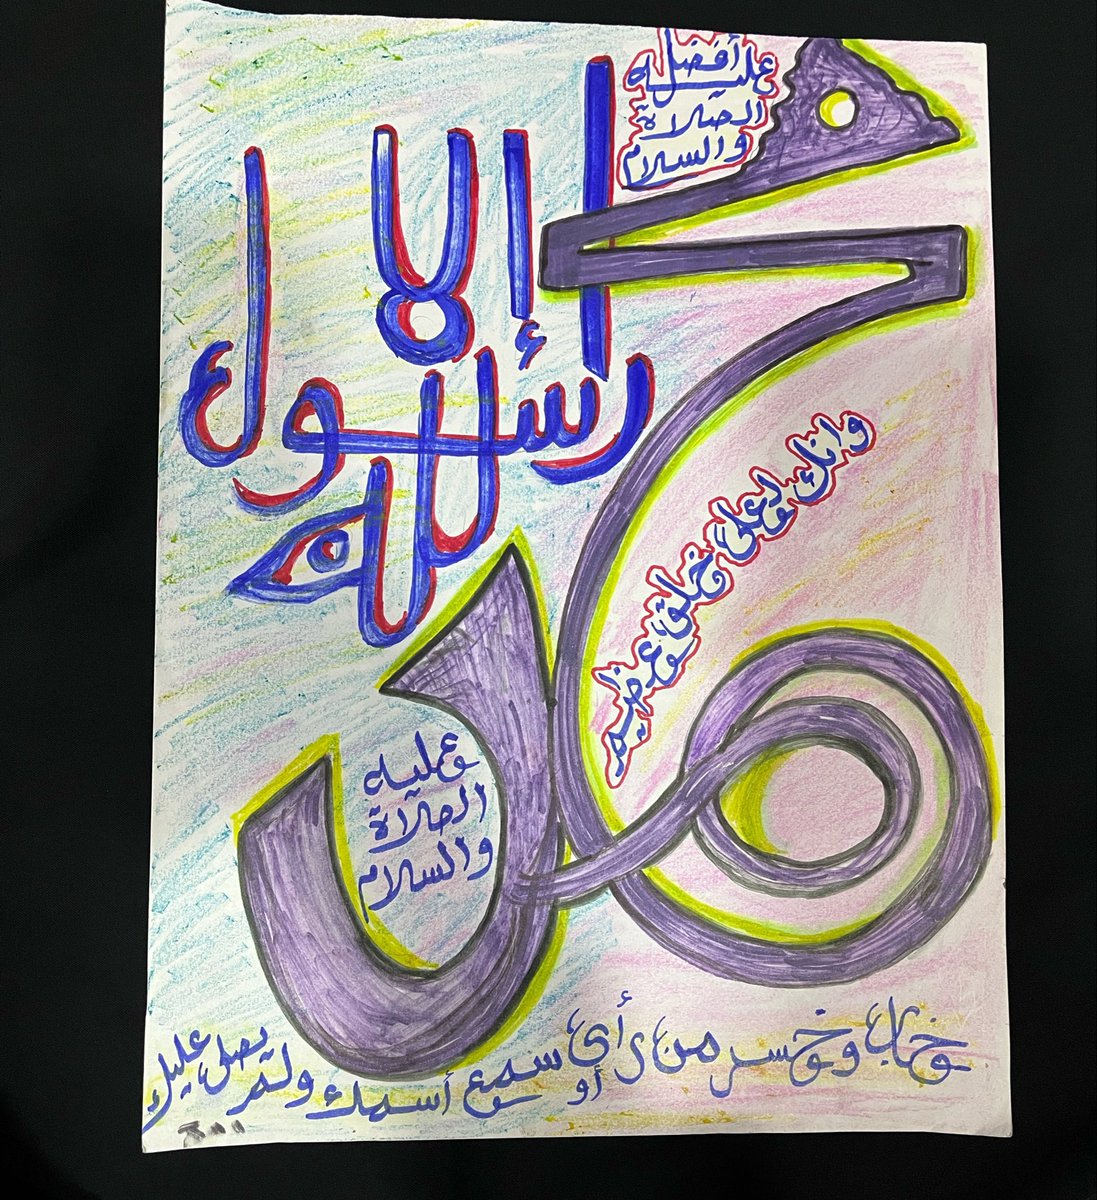 أفضل
عليه
الصلاة
والسلام
محمد
إلا
رسول
الله
وانك لعلى خلق عظيم
عليه
الصلاة
والسلام
خاب وخسر من رأى أو سمع أسمك ولم يصل عليك